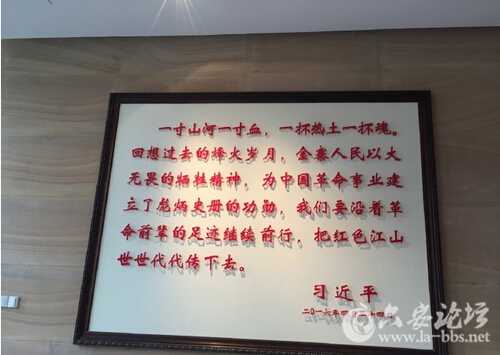 一寸山河一寸血，一抔热土一抔魂。
回想过去的烽火岁月，金寨人民以大
无畏的牺牲精神，为中国革命事业建
立了彪炳史册的功勋，我们要沿着革
命前辈的足迹继续前行，把红色江山
世世代代传下去。
习近平
二〇一六年四月
六安论坛
www.la-bbs.net